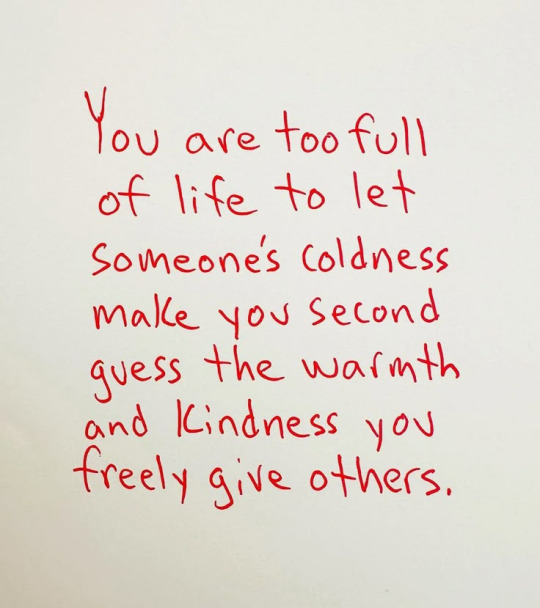 You are too full
of life to let
someone's coldness
make you second
guess the warmth
and kindness you
freely give others.